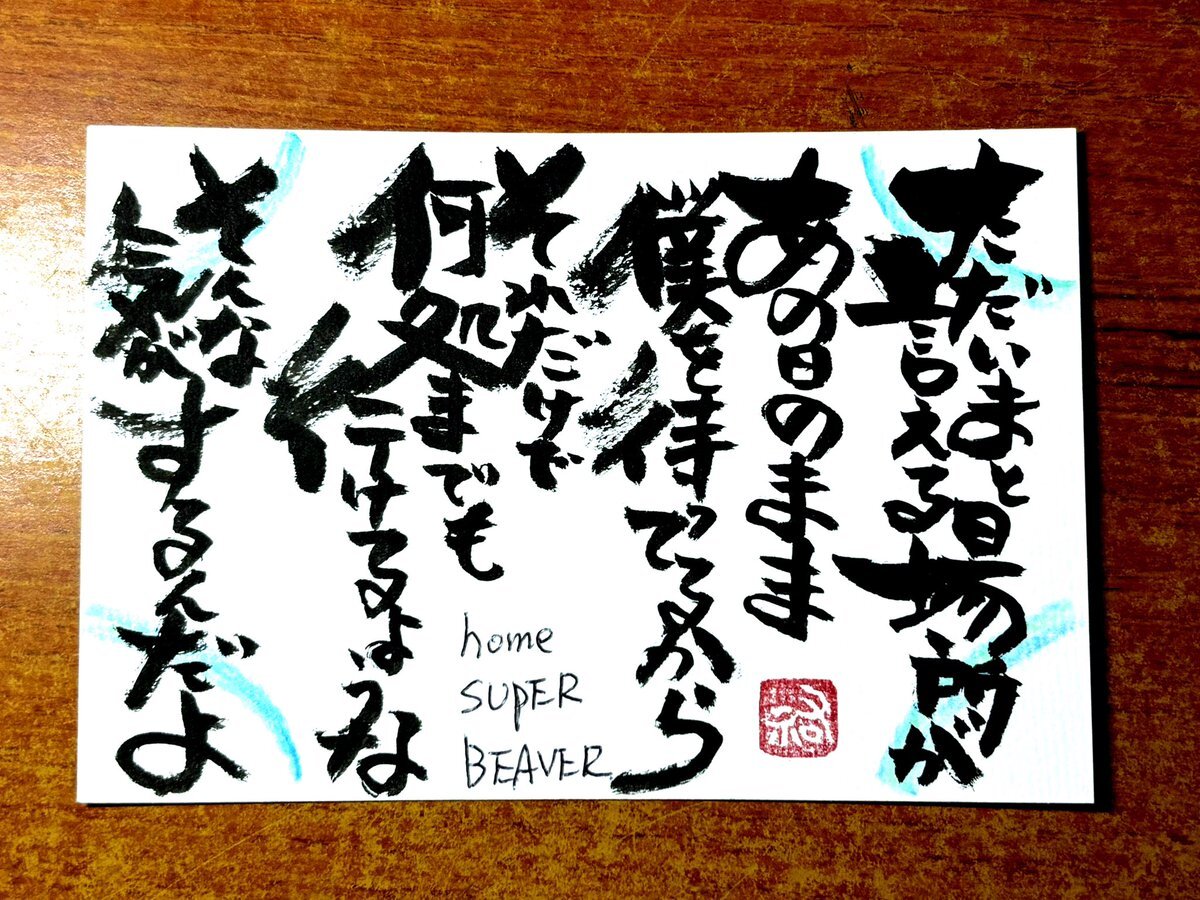 ただいまと
言える場所が
あの日のまま
僕を待ってるから
それだけで
何処までも
行けてるような
そんな
気がするんだよ
home
SUPER
BEAVER